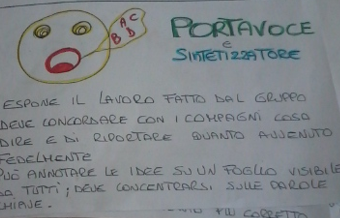 A C
B D
PORTAVOCE
e
SINTETIZZATORE
ESPONE IL LAVORO FATTO DAL GRUPPO
DEVE CONCORDARE CON I COMPAGNI COSA
DIRE E DI RIPORTARE QUANTO AVVENUTO
FEDELMENTE
PUÒ ANNOTARE LE IDEE SU UN FOGLIO VISIBILE
DA TUTTI; DEVE CONCENTRARSI SULLE PAROLE
CHIAVE.
PIÙ CORRETTO